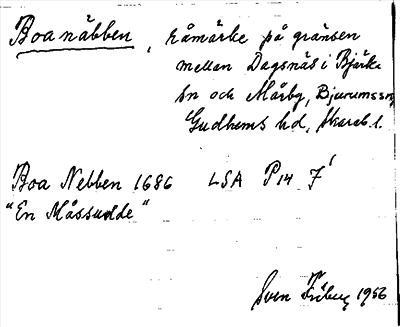 Boanäbben, råmärke på gränsen
mellan Dagsnäs i Bjärka
sn och Mårby, Bjurums sn,
Gudhems hd, Skarab. l.
Boa Nebben 1686 LSA P14 7¹
"En Måssudde"
Sven Friberg 1956